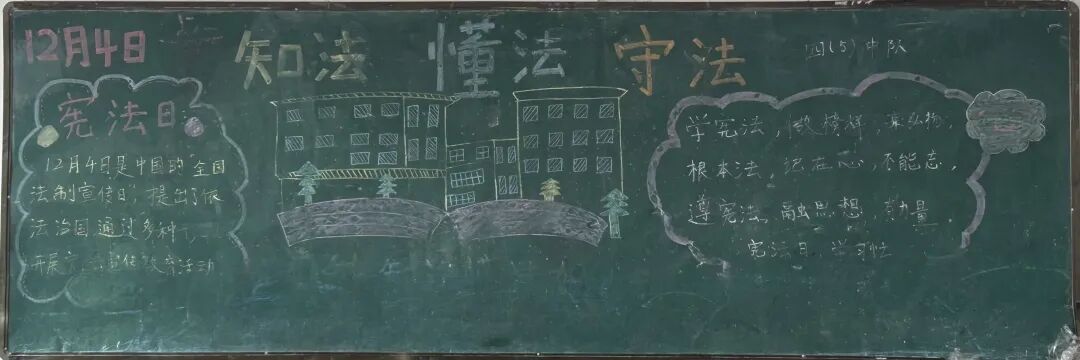 12月4日
知法 懂法 守法
四(5)中队
宪法日
12月4日是中国的"全国
法制宣传日",提出了依
法治国 通过多种
开展 宣传教育活动
学宪法,做榜样,
根本法,记在心,不能忘,
遵宪法,融思想,量
宪法日 学习忙